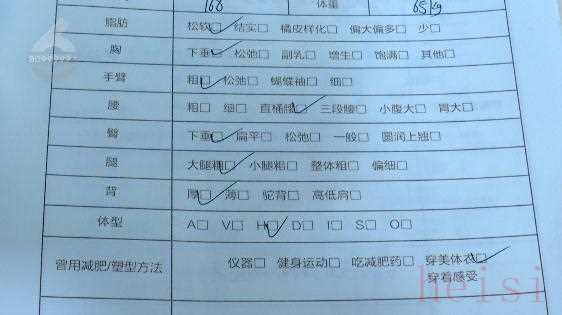 168 体重 65kg
脂肪 松软□ 结实□ 橘皮样化□ 偏大偏多□ 少□
胸 下垂□ 松弛□ 副乳□ 增生□ 饱满□ 其他□
手臂 粗□ 松弛□ 蝴蝶袖□ 细□
腰 粗□ 细□ 直桶腰□ 三段腰□ 小腹大□ 胃大□
臀 下垂□ 扁平□ 松弛□ 一般□ 圆润上翘□
腿 大腿粗□ 小腿粗□ 整体粗□ 偏细□
背 厚□ 薄□ 驼背□ 高低肩□
体型 A□ V□ H□ D□ I□ S□ O□
曾用减肥/塑型方法 仪器□ 健身运动□ 吃减肥药□ 穿美体衣□
穿着感受
heisi